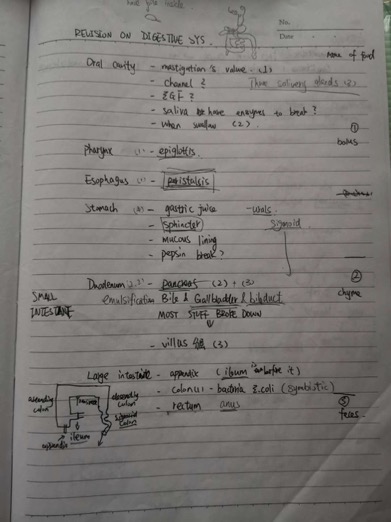 No.
Date
REVISION ON DIGESTIVE SYS.
name of food
Oral cavity - mastigation's value (1)
- channel? Three salivary glands (2)
- EGF?
- saliva have enzymes to break?
- when swallow (2)
① bolus
Pharynx (1) - epiglottis
Esophagus (1) - peristalsis
Stomach (4) - gastric juice
- sphincter Sigmoid
- mucous lining
- pepsin break?
Duodenum - pancreas (2) + (3)
② chyme
SMALL INTESTINE
emulsification Bile & Gallbladder & bileduct
MOST STUFF BROKE DOWN
- villus (3)
Large intestine - appendix (ileum before it)
- colon - bacteria E.coli (symbiotic)
- rectum anus
③ feces
ascending colon
Transverse
descending colon
sigmoid colon
appendix
ileum